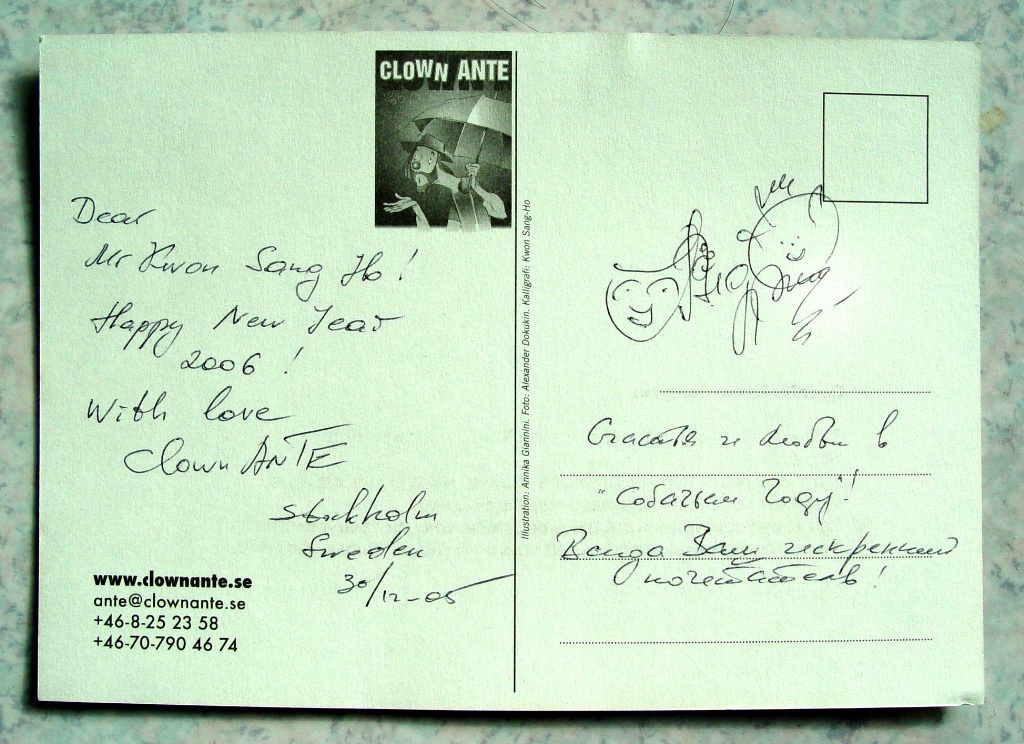 CLOWN ANTE
Dear
Mr Kwon Sang Ho!
Happy New Year
2006!
With love
Clown ANTE
Stockholm
Sweden
30/12-05
www.clownante.se
ante@clownante.se
+46-8-25 23 58
+46-70-790 46 74
Illustration: Annika Giannini. Foto: Alexander Dokukin. Kalligrafi: Kwon Sang-Ho
Счастья и Любви в
"Собачьем Году"!
Всегда Ваш искренний
почитатель!